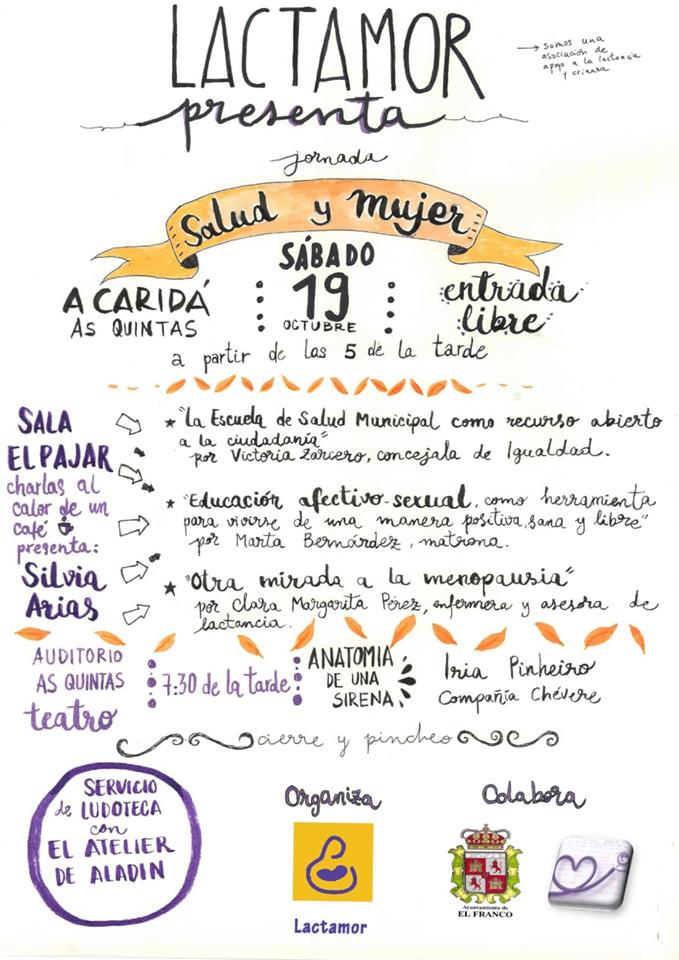 LACTAMOR
presenta
→ somos una
asociación de
apoyo a la lactancia
y crianza
jornada
Salud y mujer
A CARIDÁ
AS QUINTAS
SÁBADO
19
OCTUBRE
entrada
libre
a partir de las 5 de la tarde
SALA
EL PAJAR
charlas al
calor de un
café
presenta:
Silvia
Arias
★ "La Escuela de Salud Municipal como recurso abierto
a la ciudadanía"
por Victoria Zarcero, concejala de Igualdad.
★ "Educación afectivo-sexual, como herramienta
para vivirse de una manera positiva, sana y libre"
por Marta Bernárdez, matrona.
★ "Otra mirada a la menopausia"
por Clara Margarita Pérez, enfermera y asesora de
lactancia.
AUDITORIO
AS QUINTAS
teatro
7:30 de la tarde
ANATOMIA
DE UNA
SIRENA
Iria Pinheiro
Compañía Chévere
cierre y pincheo
SERVICIO
de LUDOTECA
con
EL ATELIER
DE ALADIN
Organiza
Lactamor
Colabora
Ayuntamiento de
EL FRANCO